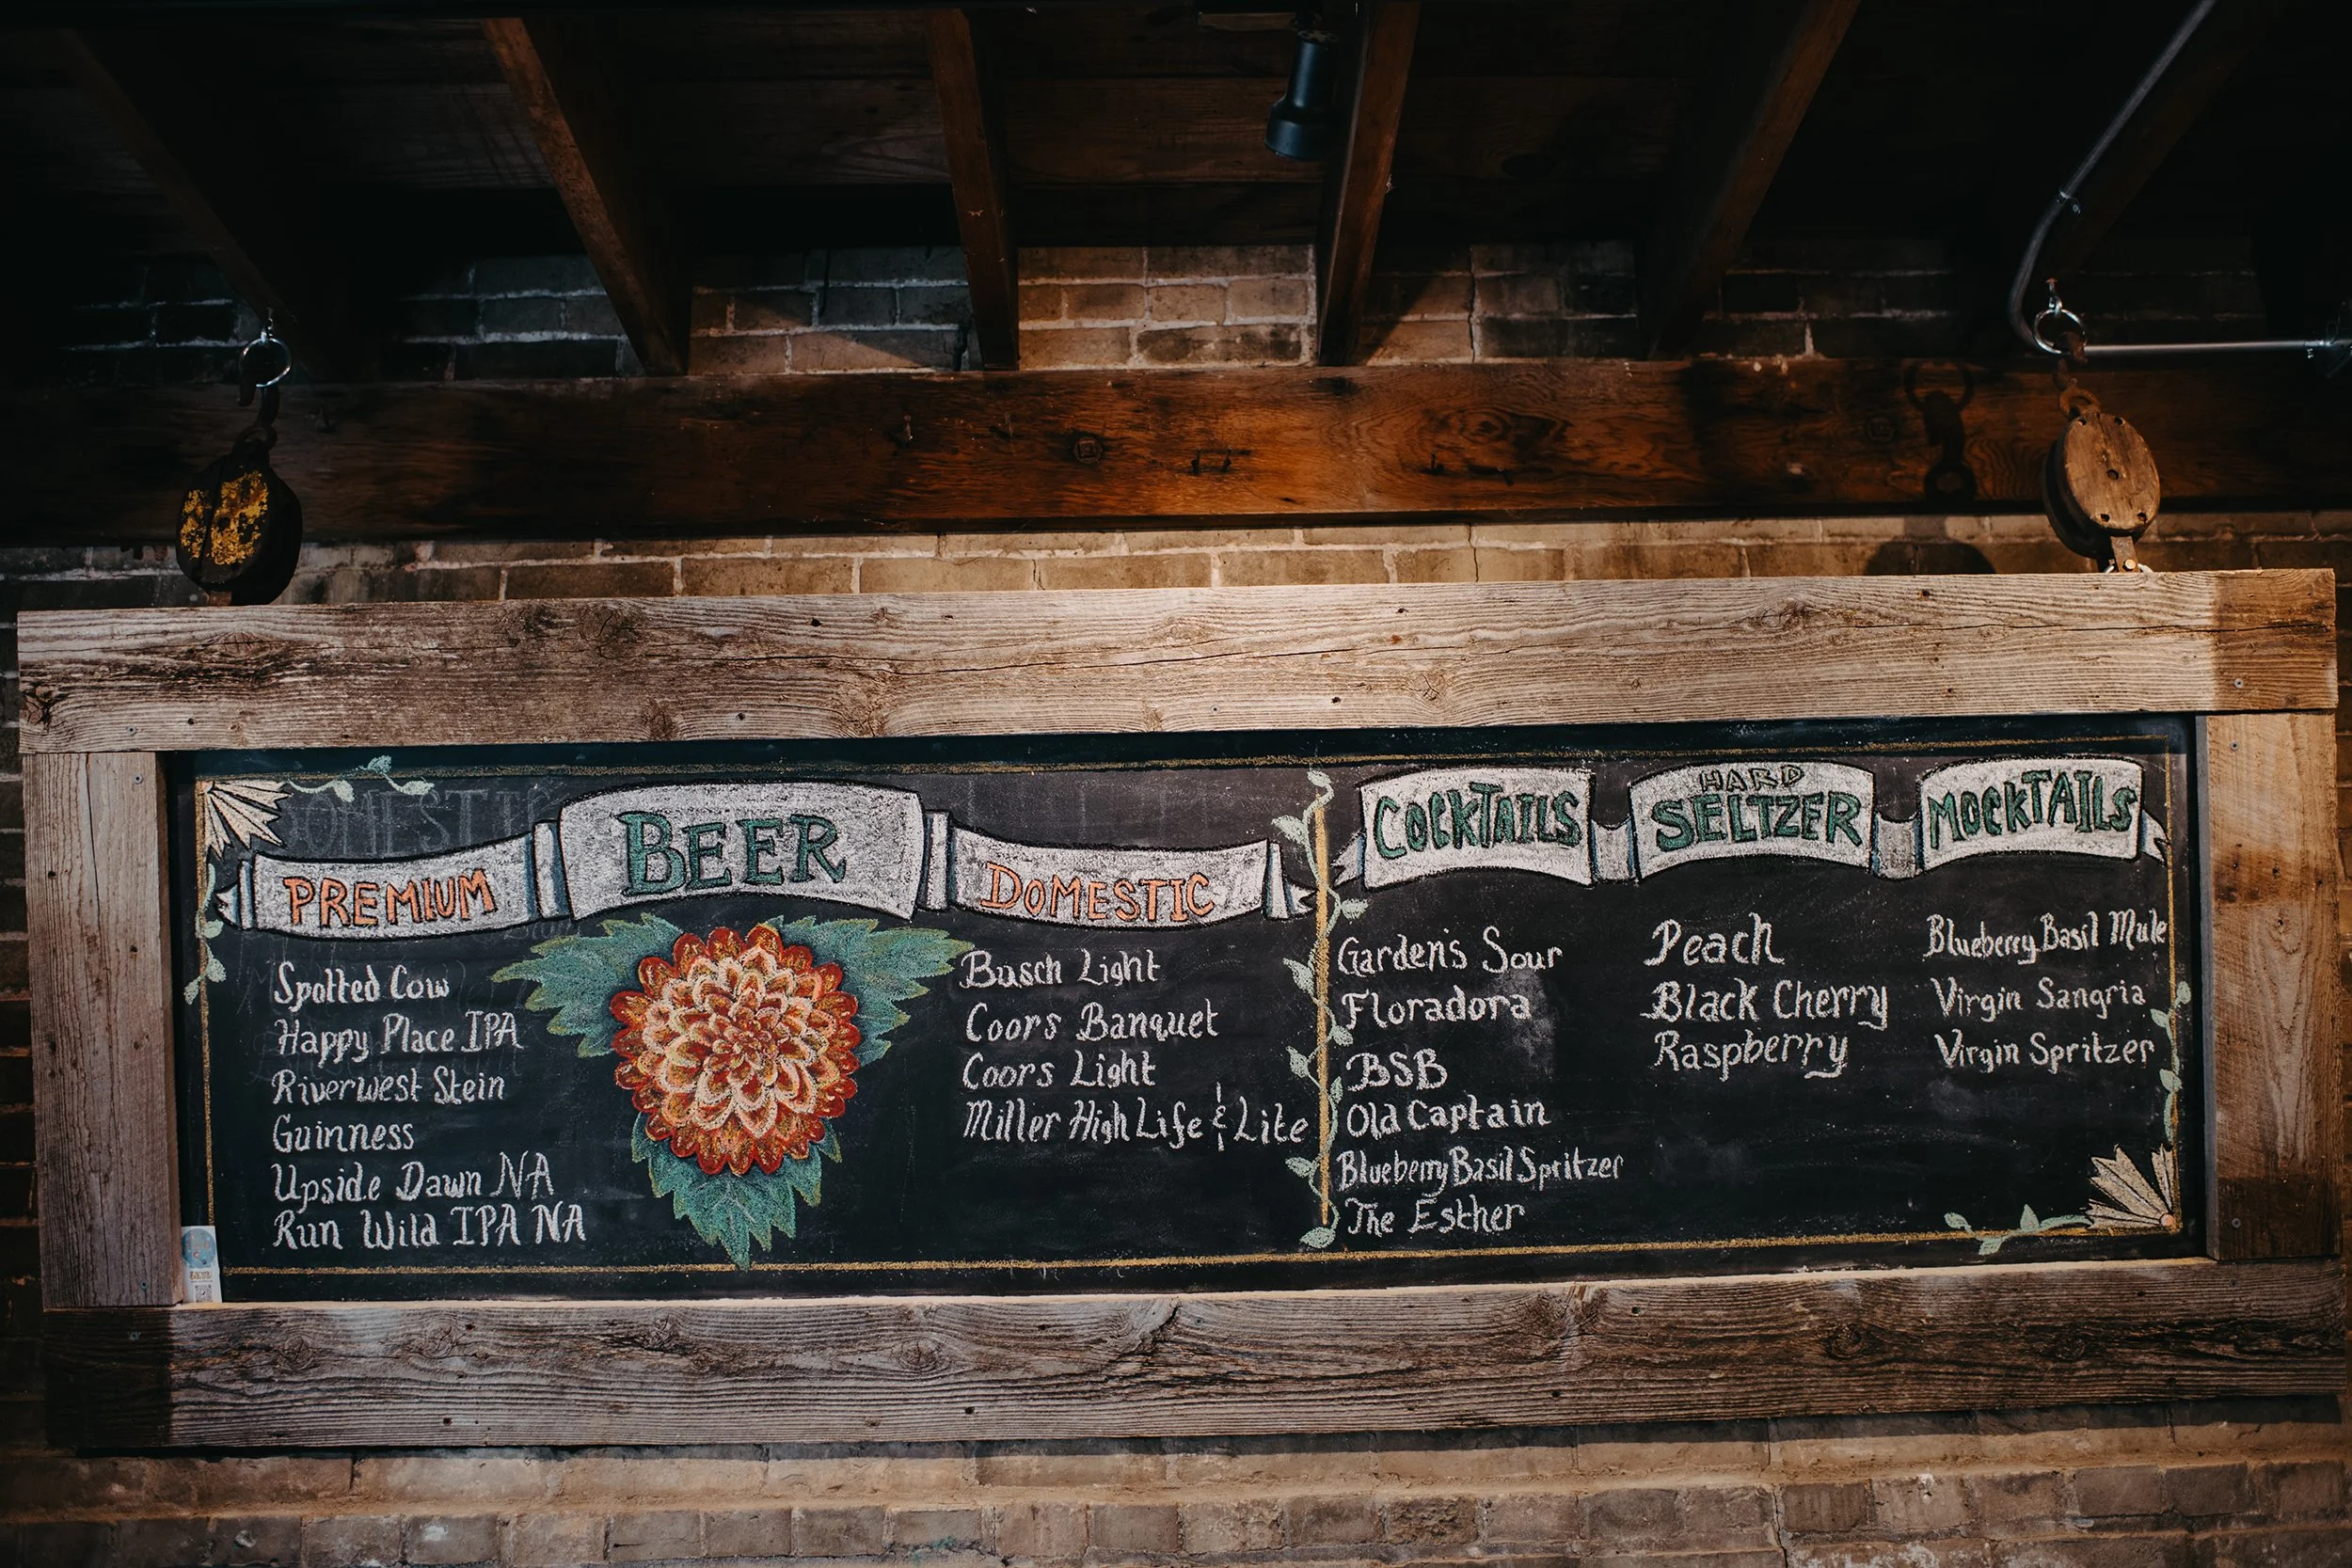 BEER
PREMIUM
Spotted Cow
Happy Place IPA
Riverwest Stein
Guinness
Upside Dawn NA
Run Wild IPA NA
DOMESTIC
Busch Light
Coors Banquet
Coors Light
Miller High Life & Lite
COCKTAILS
Garden's Sour
Floradora
BSB
Old Captain
Blueberry Basil Spritzer
The Esther
HARD
SELTZER
Peach
Black Cherry
Raspberry
MOCKTAILS
Blueberry Basil Mule
Virgin Sangria
Virgin Spritzer
DOMESTIC